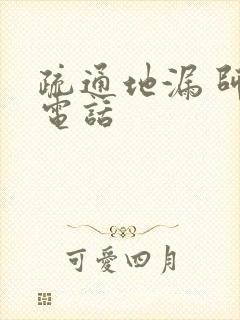 疏通地漏師
電話
可愛四月